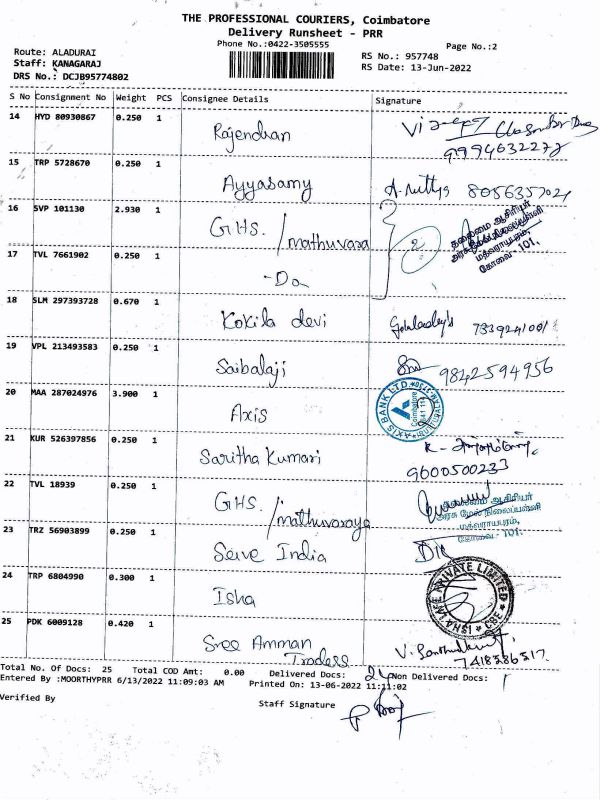 THE PROFESSIONAL COURIERS, Coimbatore
Delivery Runsheet - PRR
Phone No.:0422-3505555
Page No.:2
Route: ALADURAI
Staff: KANAGARAJ
DRS No.: DCJB95774802
RS No.: 957748
RS Date: 13-Jun-2022
S No Consignment No Weight PCS Consignee Details Signature
14 HYD 80930867 0.250 1 Rajendran
9994632272
15 TRP 5728670 0.250 1 Ayyasamy 8056357021
16 SVP 101130 2.930 1 GHS. /mathuvara
தலைமை ஆசிரியர்
மத்வராயபுரம்,
கோவை - 101.
17 TVL 7661902 0.250 1 -Do
18 SLM 297393728 0.670 1 Kokila devi 7339241001
19 VPL 213493583 0.250 1 Saibalaji 9842594956
20 MAA 287024976 3.900 1 Axis
AXIS BANK LTD.
Coimbatore
21 KUR 526397856 0.250 1 Saritha Kumari
9600500233
22 TVL 18939 0.250 1 GHS. /mathuvaraya
தலைமை ஆசிரியர்
அரசு மேல் நிலைப்பள்ளி
மத்வராயபுரம்,
கோவை - 101.
23 TRZ 56903899 0.250 1 Seive India
24 TRP 6804990 0.300 1 Isha
PRIVATE LIMITED
25 PDK 6009128 0.420 1 Sree Amman
Traders
7418586517.
Total No. Of Docs: 25 Total COD Amt: 0.00 Delivered Docs: 24 Non Delivered Docs: 1
Entered By :MOORTHYPRR 6/13/2022 11:09:03 AM Printed On: 13-06-2022 11:11:02
Verified By Staff Signature